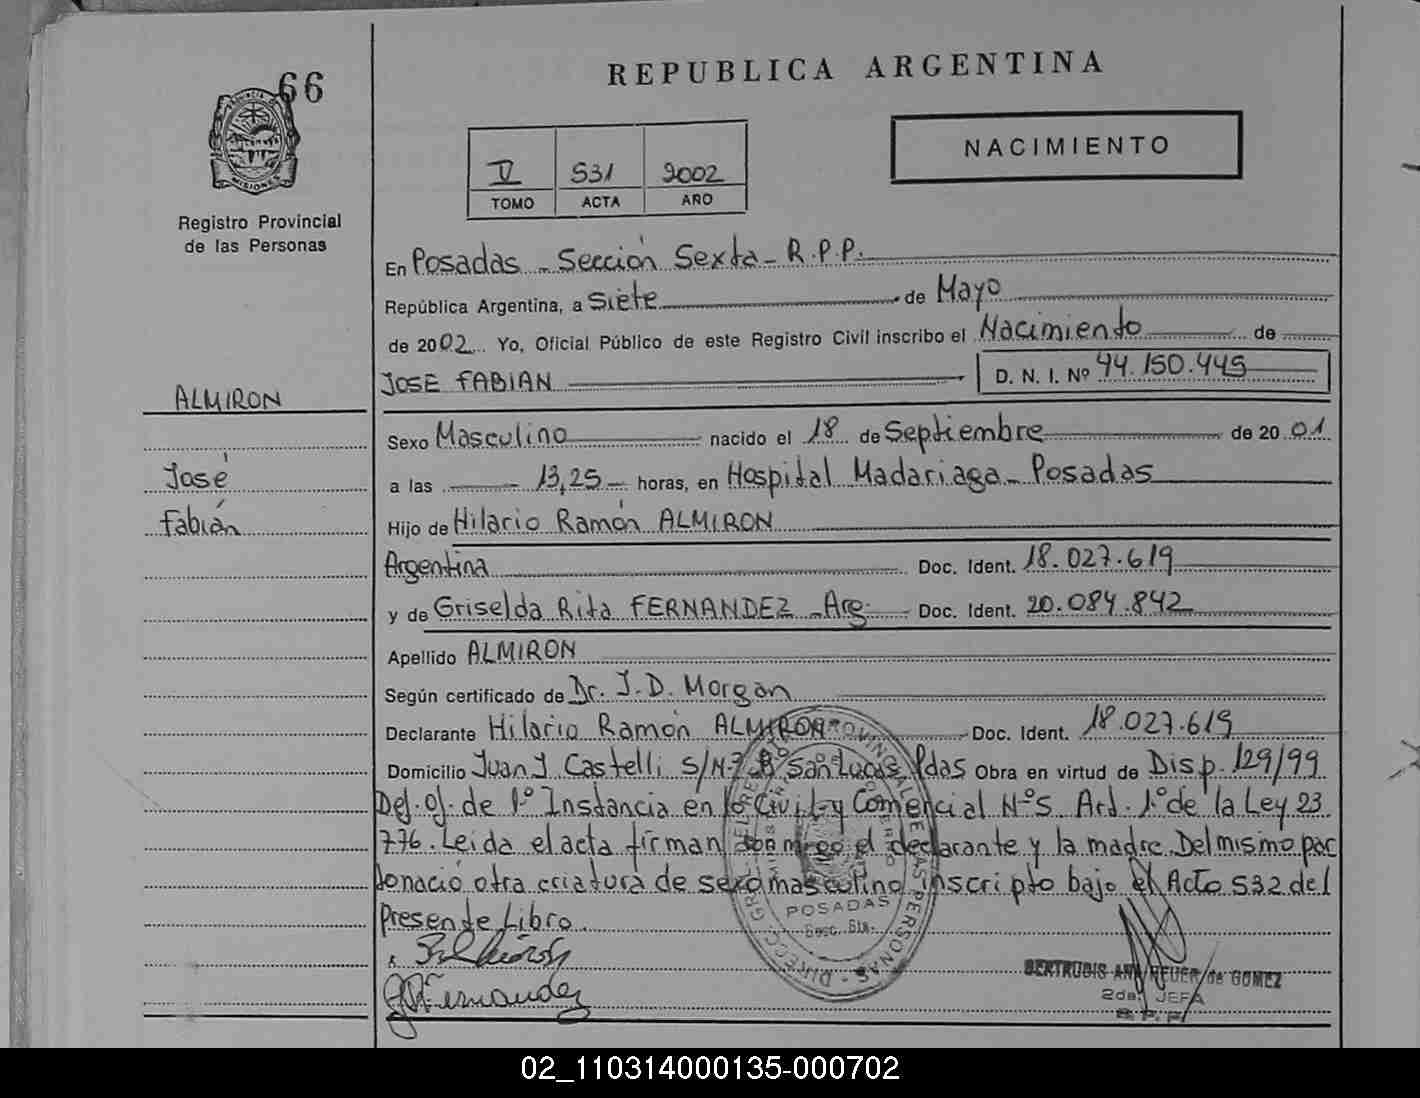 66
REPUBLICA ARGENTINA
NACIMIENTO
V 531 2002
TOMO ACTA AÑO
PROVINCIA DE MISIONES
Registro Provincial
de las Personas
En Posadas - Sección Sexta - R.P.P.
República Argentina, a Siete de Mayo
de 2002 Yo, Oficial Público de este Registro Civil inscribo el Nacimiento de
JOSE FABIAN D. N. I. Nº 44.150.445
ALMIRON
José
Fabián
Sexo Masculino nacido el 18 de Septiembre de 20 01
a las 13,25 horas, en Hospital Madariaga - Posadas
Hijo de Hilario Ramón ALMIRON
Argentina Doc. Ident. 18.027.619
y de Griselda Rita FERNANDEZ - Arg. Doc. Ident. 20.084.842
Apellido ALMIRON
Según certificado de Dr. J.D. Morgan
Declarante Hilario Ramón ALMIRON Doc. Ident. 18.027.619
Domicilio Juan J Castelli S/Nº Bº San Lucas Pdas Obra en virtud de Disp. 129/99
Def. of. de 1º Instancia en lo Civil y Comercial Nº5 Art. 1º de la Ley 23
776. Leida el acta firman conmigo el declarante y la madre. Del mismo par
to nació otra criatura de sexo masculino inscripto bajo el Acto 532 del
Presente Libro.
Fernandez
POSADAS
Secc. 6ta.
GERTRUDIS ANA HEUER de GOMEZ
2da. JEFA
R. P. P.
02_110314000135-000702